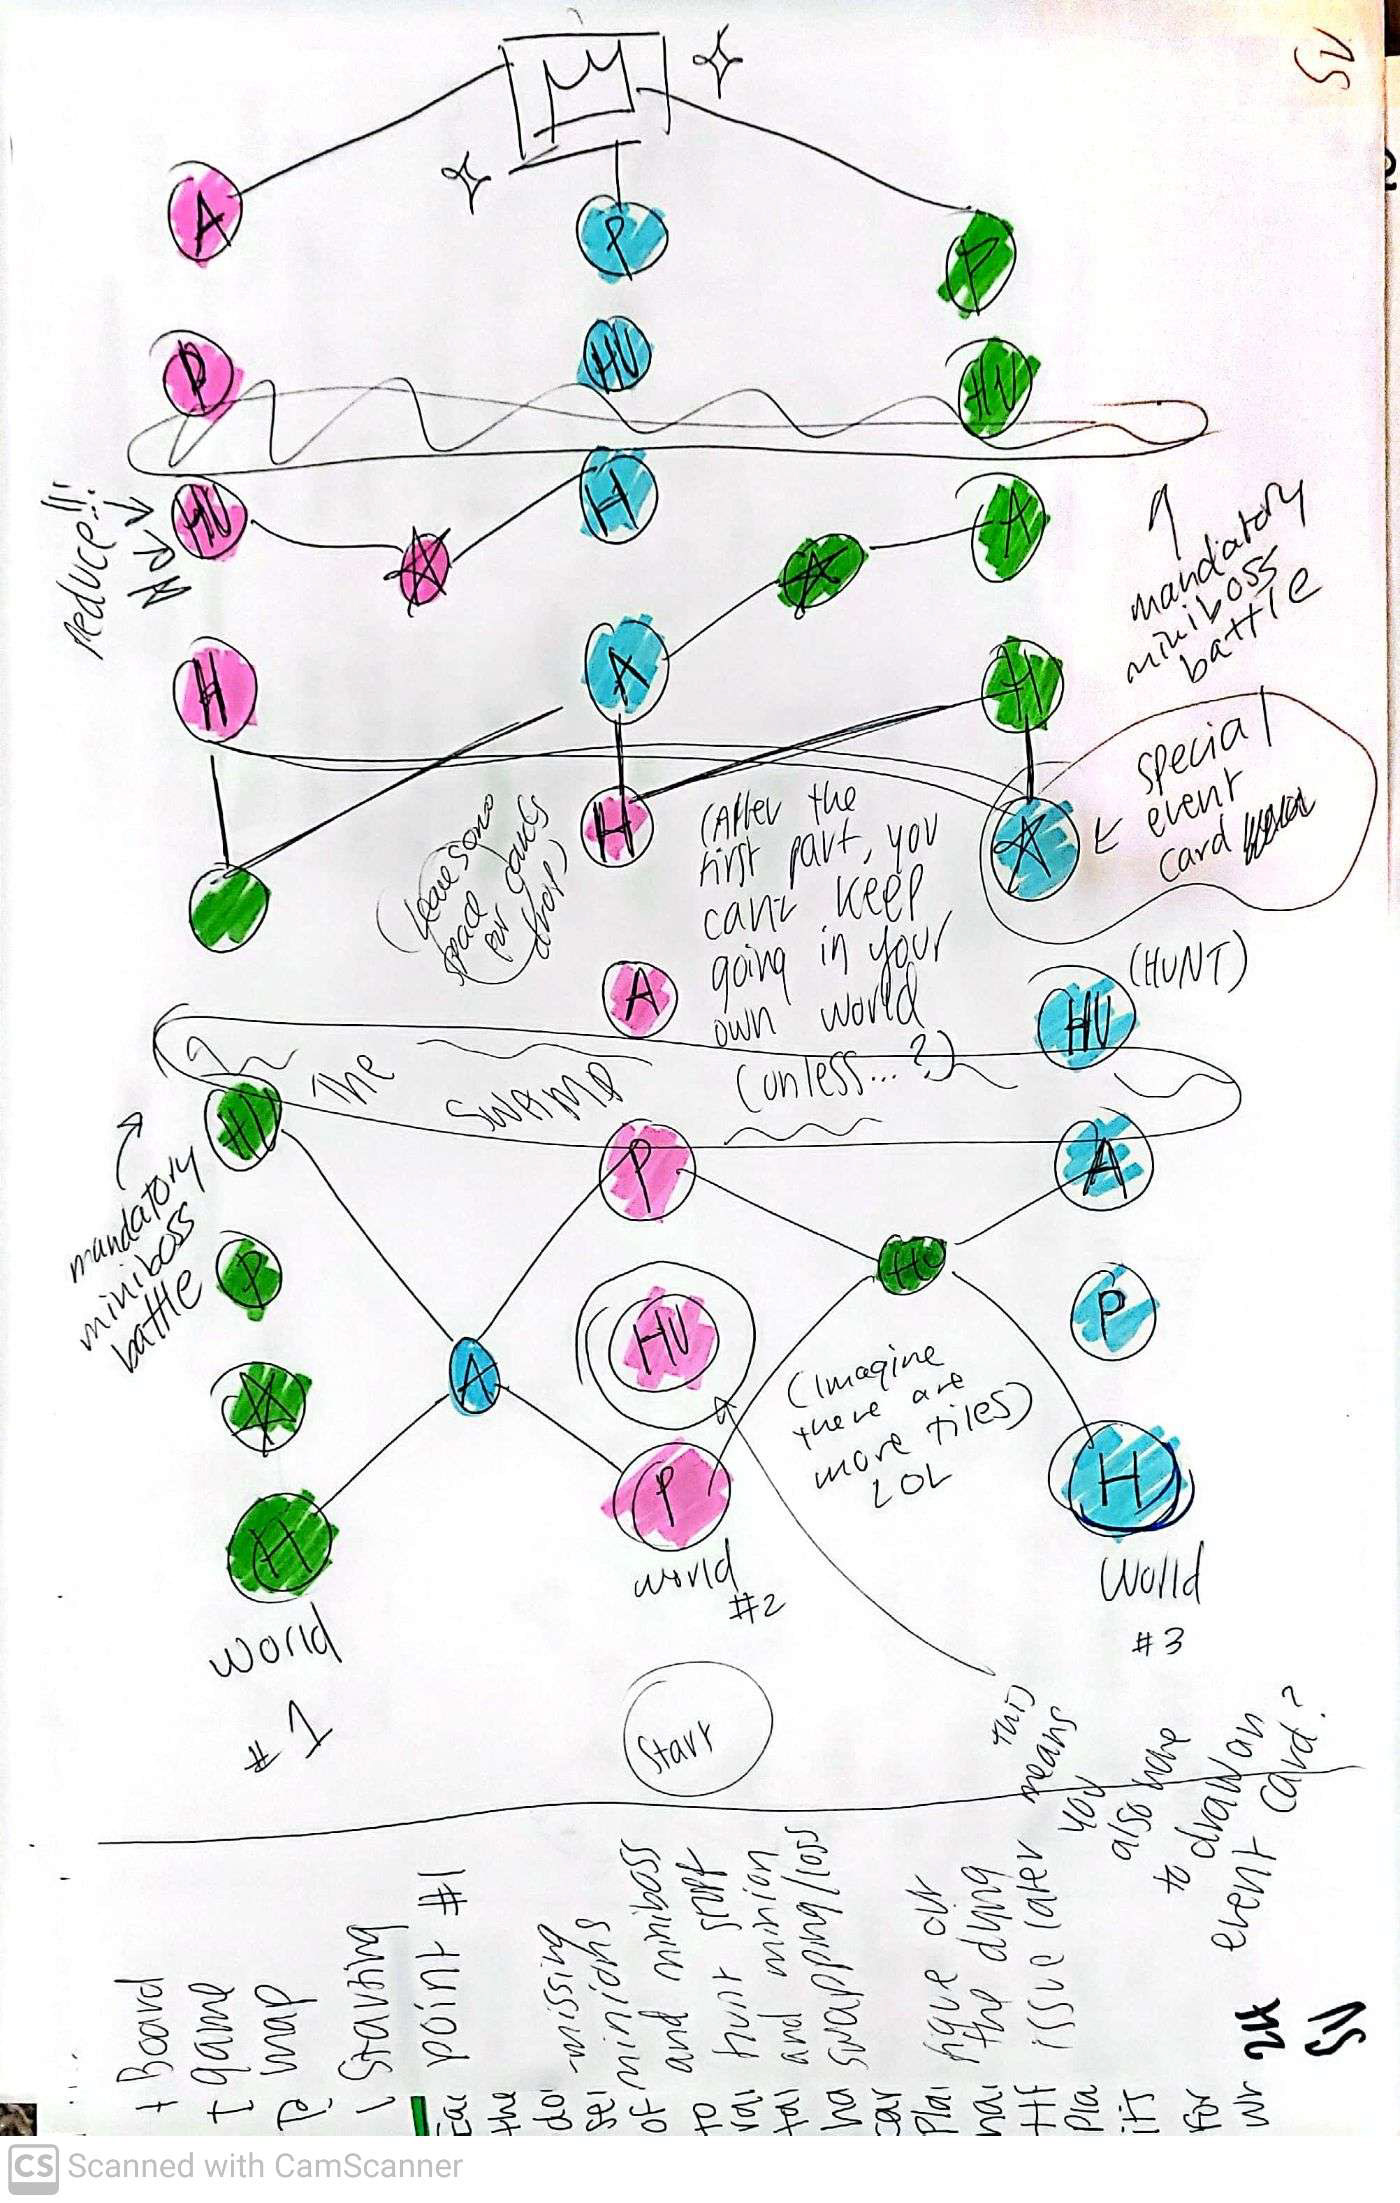 A
P
P
P
HU
HU
HU
H
A
Reduce!!!
mandiatory
miniboss
battle
H
A
H
special
event
card
H
(leave some
space
for cards
drop)
(After the
first part, you
can't keep
going in your
own world
(unless...?)
A
HU
(HUNT)
The
Swamp
HU
P
A
mandatory
miniboss
battle
P
HU
HU
P
A
(Imagine
there are
more tiles)
LOL
H
P
H
World
#1
World
#2
World
#3
Start
this
means
you
also have
to draw an
event card?
Board
game
map
Starting
point #1
-missing
minions
and miniboss
and stuff
hunt
and minion
swapping/loss
figure out
the dying
issue later
CS Scanned with CamScanner